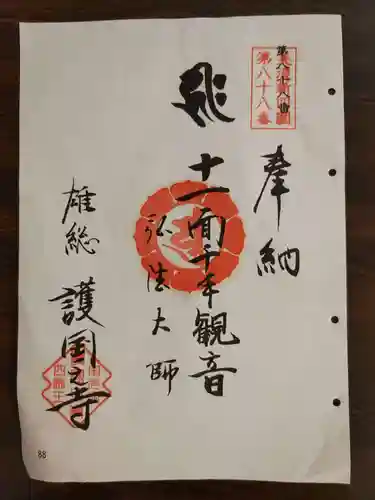 第八十八番
第八十八番
奉納
十一面千手観音
弘法大師
雄総
護国之寺
88